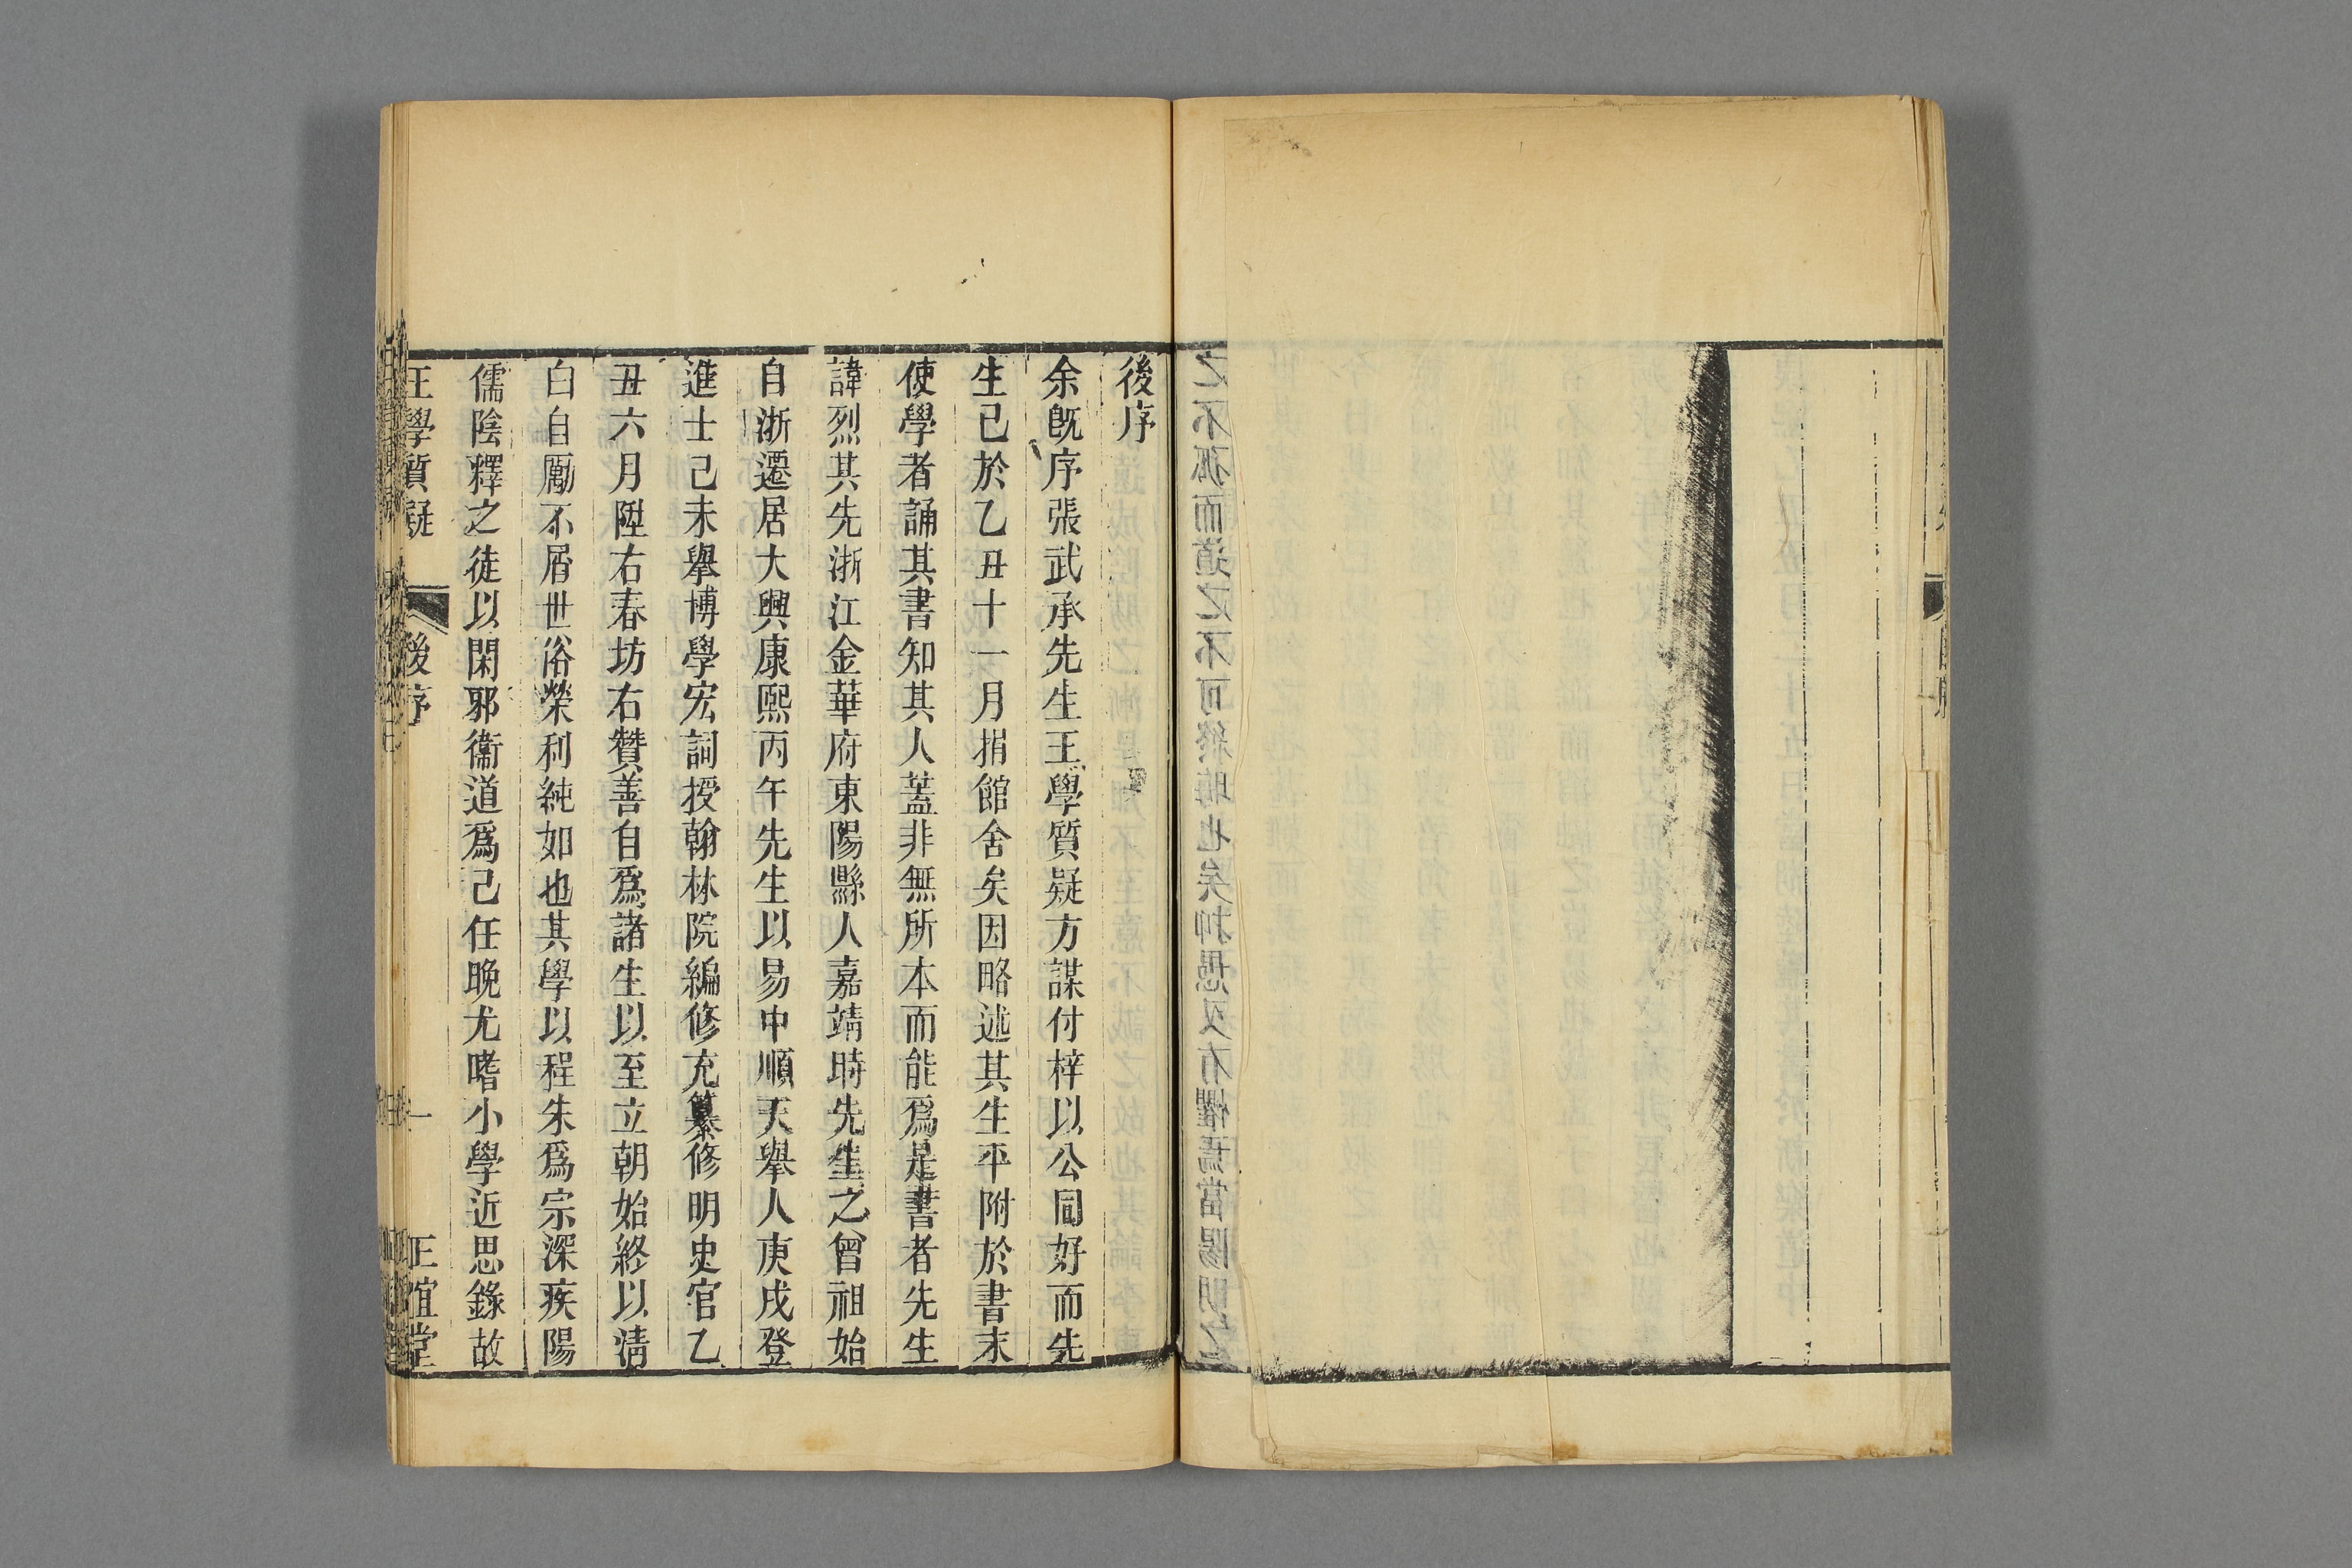 後序
余旣序張武承先生王學質疑方謀付梓以公同好而先
生已於乙丑十一月捐館舍矣因略述其生平附於書末
使學者誦其書知其人蓋非無所本而能爲是書者先生
諱烈其先浙江金華府東陽縣人嘉靖時先生之曾祖始
自浙遷居大興康熙丙午先生以易中順天舉人庚戌登
進士己未舉博學宏詞授翰林院編修充纂修明史官乙
丑六月陞右春坊右贊善自爲諸生以至立朝始終以淸
白自勵不屑世俗榮利純如也其學以程朱爲宗深疾陽
儒陰釋之徒以閑邪衞道爲己任晚尤嗜小學近思錄故
王學質疑 後序 一 正誼堂